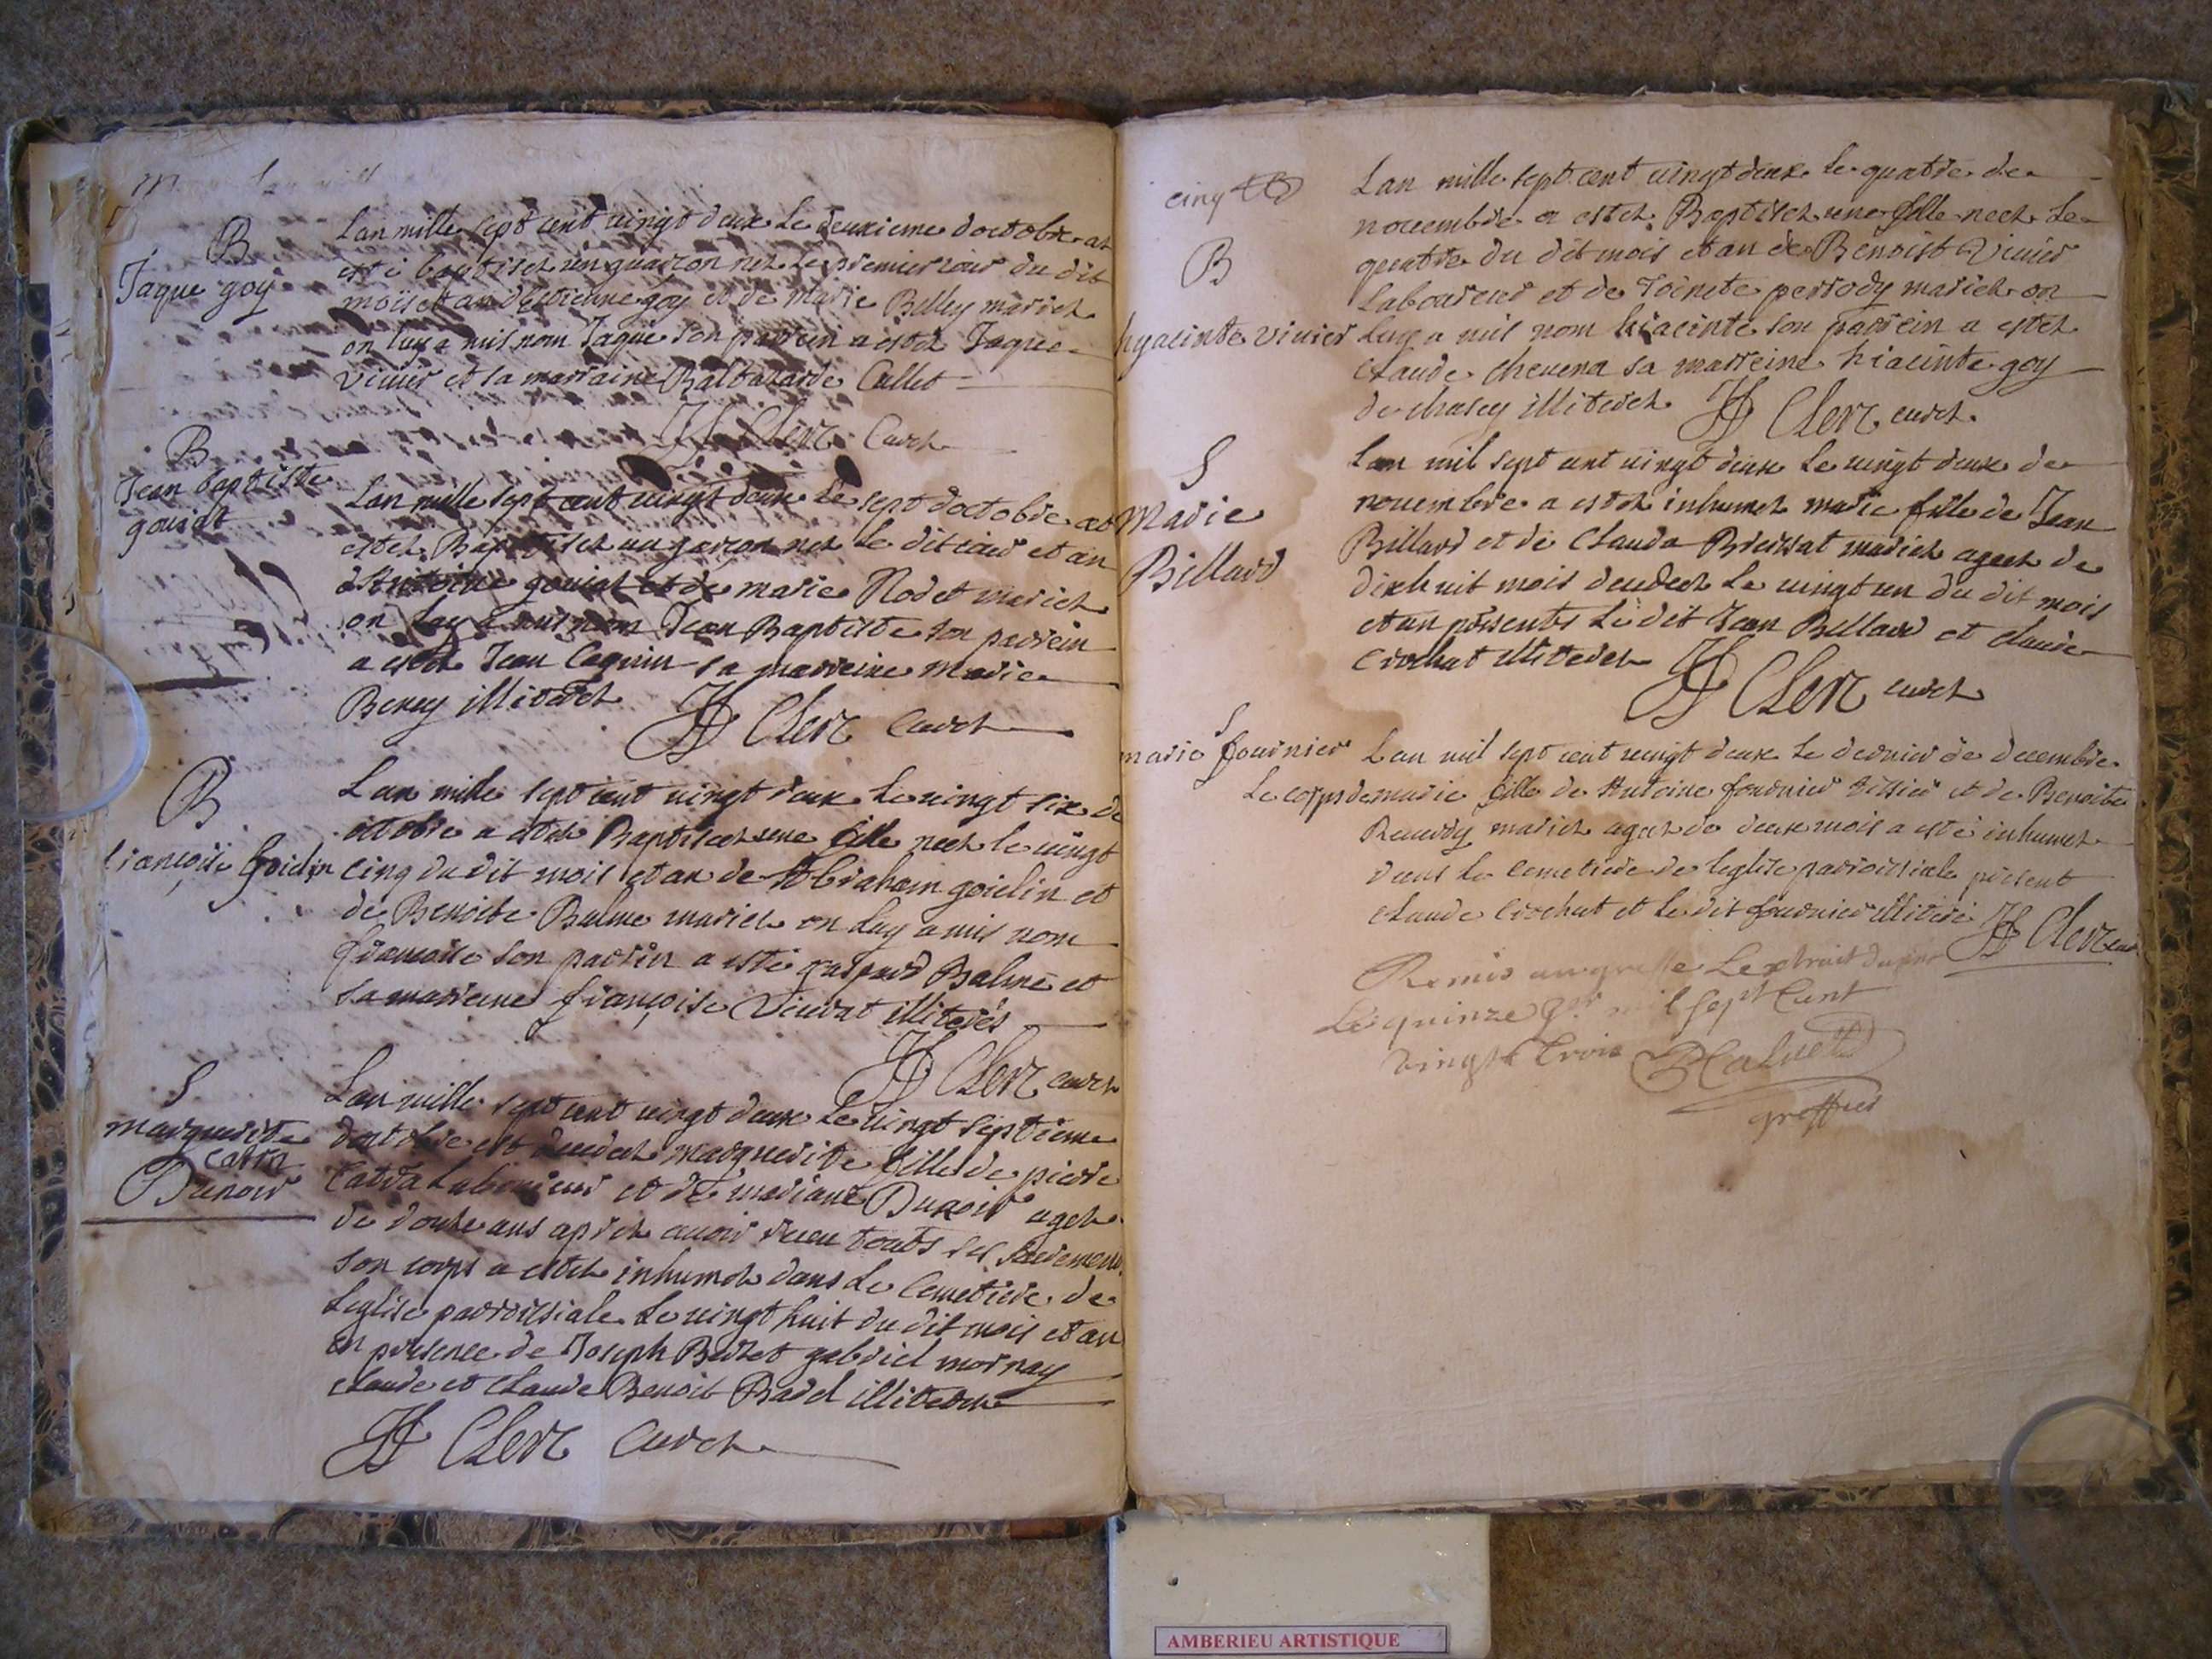 B
Jaque goy
Lan mille sept cent vingt deux le deuxieme doctobre at
esté baptiset un guarcon net le premier iour du dit
mois et an destienne goy et de marie Belley mariet
on luy a mis nom Jaque son parrein a estet Jaque
Vivier et sa marraine Baltazarde Callet
JF Clerc Curet
B
Jean baptiste
goujat
Lan mille sept cent vingt deux le sept doctobre at
estet Baptiset un garcon net le dit iour et an
dAntoine goujat et de marie Rodet mariet
on luy a mis nom Jean Baptiste son parrein
a estet Jean Cagnin sa marreine marie
Berey illiteret
JF Clerc Curet
B
francoise goiclin
Lan mille sept cent vingt deux le vingt six de
octobre a estet Baptiset une fille neet le vingt
cinq du dit mois et an de Abraham goiclin et
de Benoite Balme mariet on luy a mis nom
francoise son parrin a esté gaspard Balme et
sa marreine françoise Vieurat illiterés
JF Clerc curet
S
marguerite
catra
Dunoir
Lan mille sept cent vingt deux le vingt septieme
doctobre est decedeet marguerite fille de pierre
Catra Laboureur et de mariane Dunoir aget
de douze ans apret avoir receu touts ses sacremens
son corps a estet inhumet dans le Cemetiere de
Leglise parroissiale le vingt huit du dit mois et an
en presence de Joseph Buizet gabriel mornay
claude et claude Benoit Badel illiteret
JF Clerc Curet
cinq
B
hyacinte vivier
Lan mille sept cent vingt deux le quatre de
novembre a estet Baptiset une fille neet le
quatre du dit mois et an de Benoist Vivier
Laboureur et de Toinete perrody mariet on
Luy a mis nom hiacinte son parrein a estet
Claude chevena sa marreine hiacinte goy
de chasey illiteret JF Clerc curet
S
Marie
Billard
Lan mil sept cent vingt deux le vingt deux de
novembre a estet inhumet marie fille de Jean
Billard et de Clauda Bressat mariet ageet de
dixhuit mois decedeet le vingt un du dit mois
et an présents le dit Jean Billard et claude
Crochat illiteret JF Clerc curet
S
marie fournier
Lan mil sept cent vingt deux le dernier de decembre
Le corps de marie fille de Antoine fournier tissier et de Benoite
Reverdy mariet ageet de deux mois a esté inhumet
dans le Cemetiere de leglise parroissiale présent
claude Crochat et le dit fournier illiteré JF Clerc cur
Remis au greffe Lextrait du
Le quinze mil sept Cent
vingt trois
greffier
AMBERIEU ARTISTIQUE